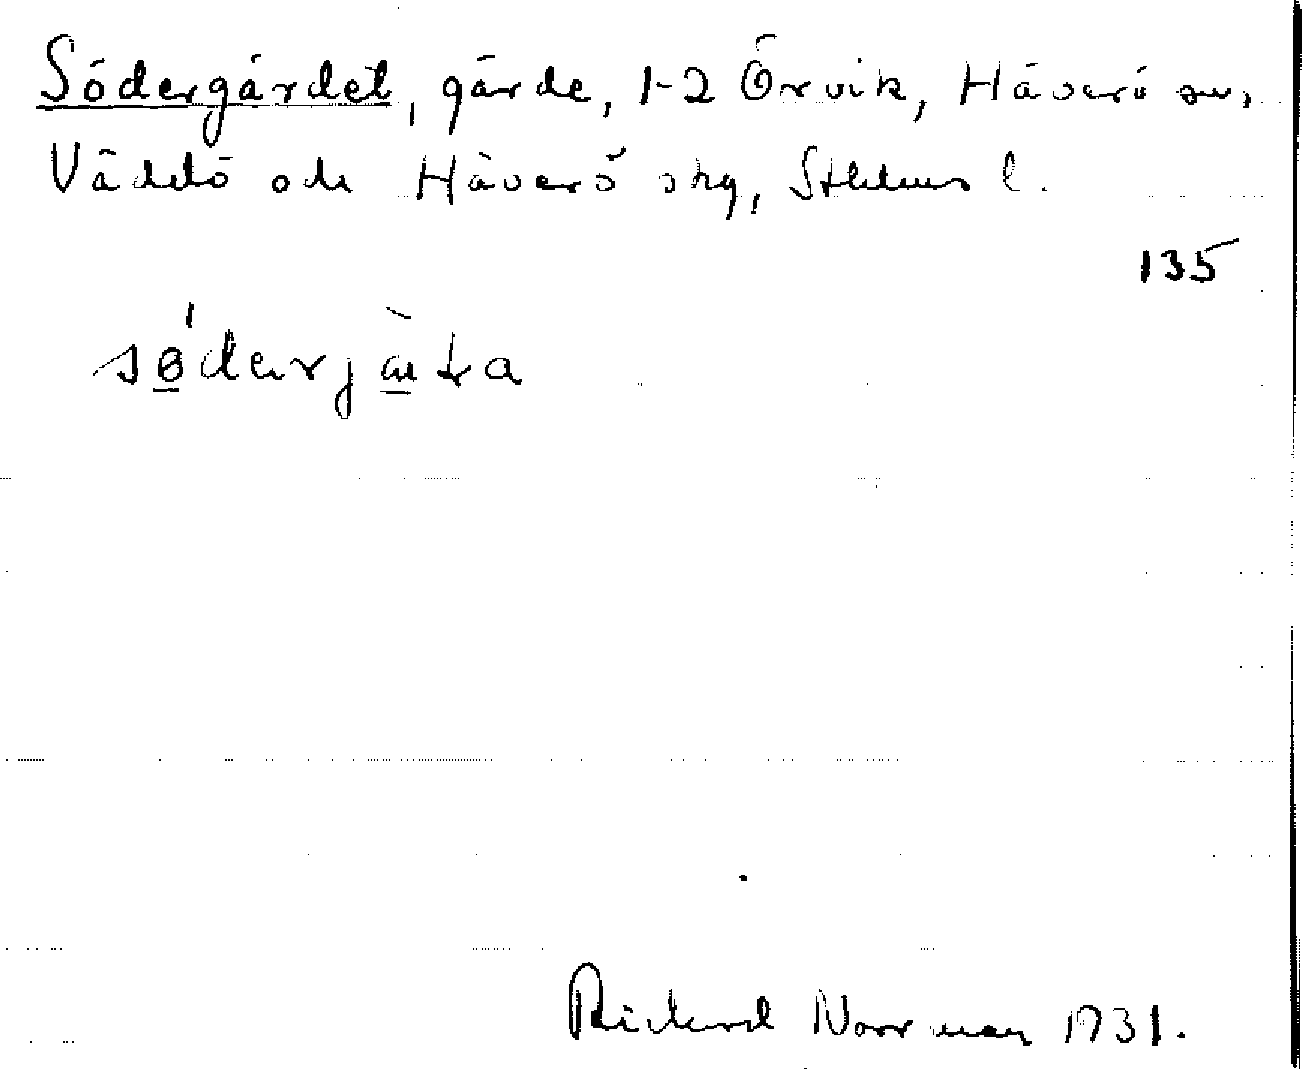 Södergärdet, gärde, 1-2 Örvik, Häverö sn,
Väddö och Häverö skg, Sthlms l.
135
Richard Norrman 1931.